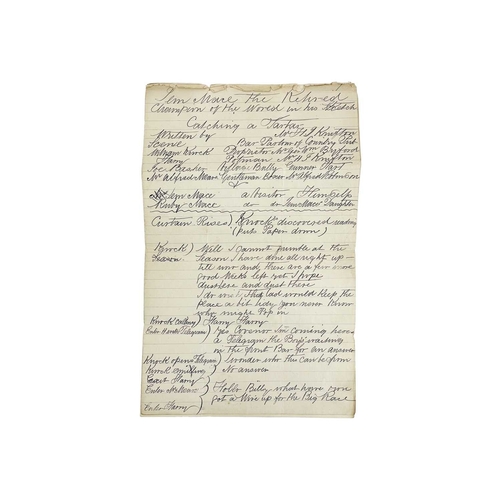 Jem Mace the Retired
Champion of the World in his Sketch
Catching a Tartar
Written by Mr H J Knifton
Scene Bar Parlour of Country Pub
William Knock Proprietor Mr
Harry Potman Mr H J Knifton
Joe Bully
Mr Alfred Gentleman Mr Alfred
Jem Mace a Visitor Himself
Ruby Mace do do Jem Mace's Daughter
Curtain Rises) Knock discovered reading
(puts Paper down)
Knock) Well I cannot grumble at the
Season. Season I have done all right up
till now and there are a few more
good weeks left yet I hope
dust here and dust there
I do wish that lad would keep the
place a bit tidy you never know
who might Pop in
Knock calling) Harry Harry
Enter Harry Telegram) Yes Govenor I'm coming heres
a Telegram the Boys waiting
in the front Bar for an answer
Knock opens Telegram) wonder who this can be from
Knock No answer
Exit Harry
Enter Hollo Billy what have you
got a Wire up for the Big Race
Enter Harry